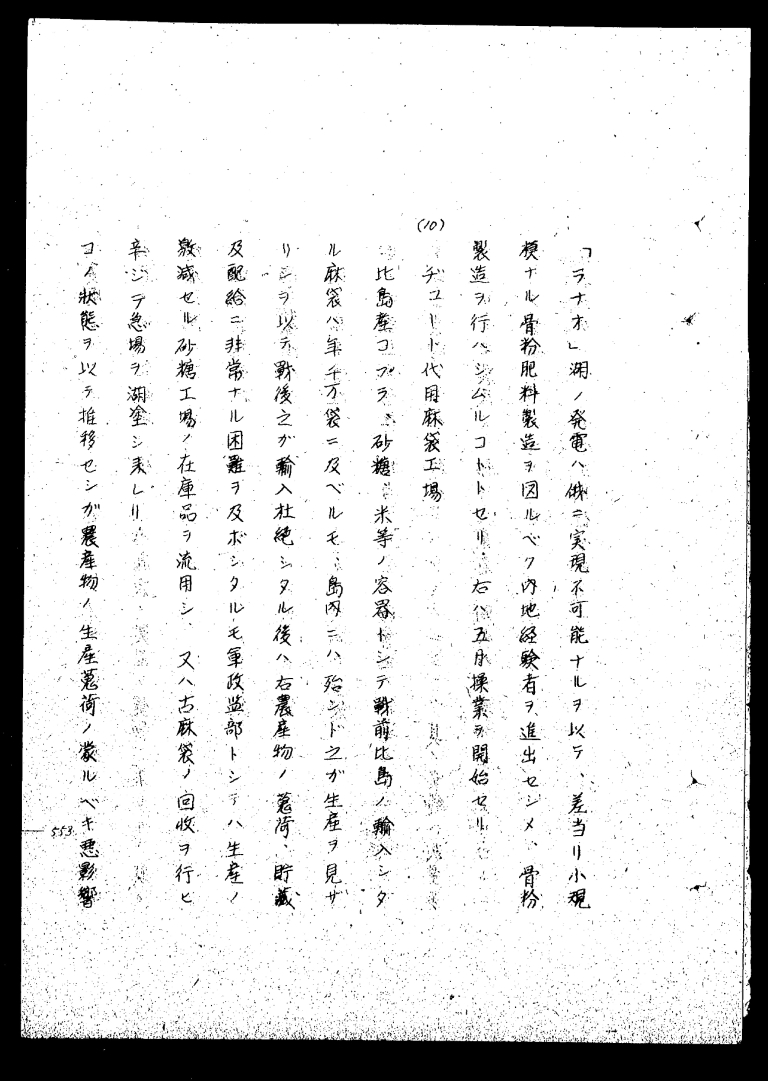 「ラナオ」湖ノ発電ハ俄ニ実現不可能ナルヲ以テ、差当リ小規
模ナル骨粉肥料製造ヲ図ルベク内地経験者ヲ進出セシメ、骨粉
製造ヲ行ハシムルコトトセリ、右ハ五月操業ヲ開始セリ
(10)
ヂュート代用麻袋工場
比島産コプラ、砂糖、米等ノ容器トシテ戦前比島ノ輸入シタ
ル麻袋ハ年千万袋ニ及ベルモ、島内ニハ殆ンド之ガ生産ヲ見ザ
リシヲ以テ戦後之ガ輸入杜絶シタル後ハ右農産物ノ蒐荷、貯蔵
及配給ニ非常ナル困難ヲ及ボシタルモ軍政監部トシテハ生産ノ
激減セル砂糖工場ノ在庫品ヲ流用シ、又ハ古麻袋ノ回収ヲ行ヒ
辛ジテ急場ヲ湖塗シ来レリ
コノ状態ヲ以テ推移センガ農産物ノ生産蒐荷ノ蒙ルベキ悪影響
553